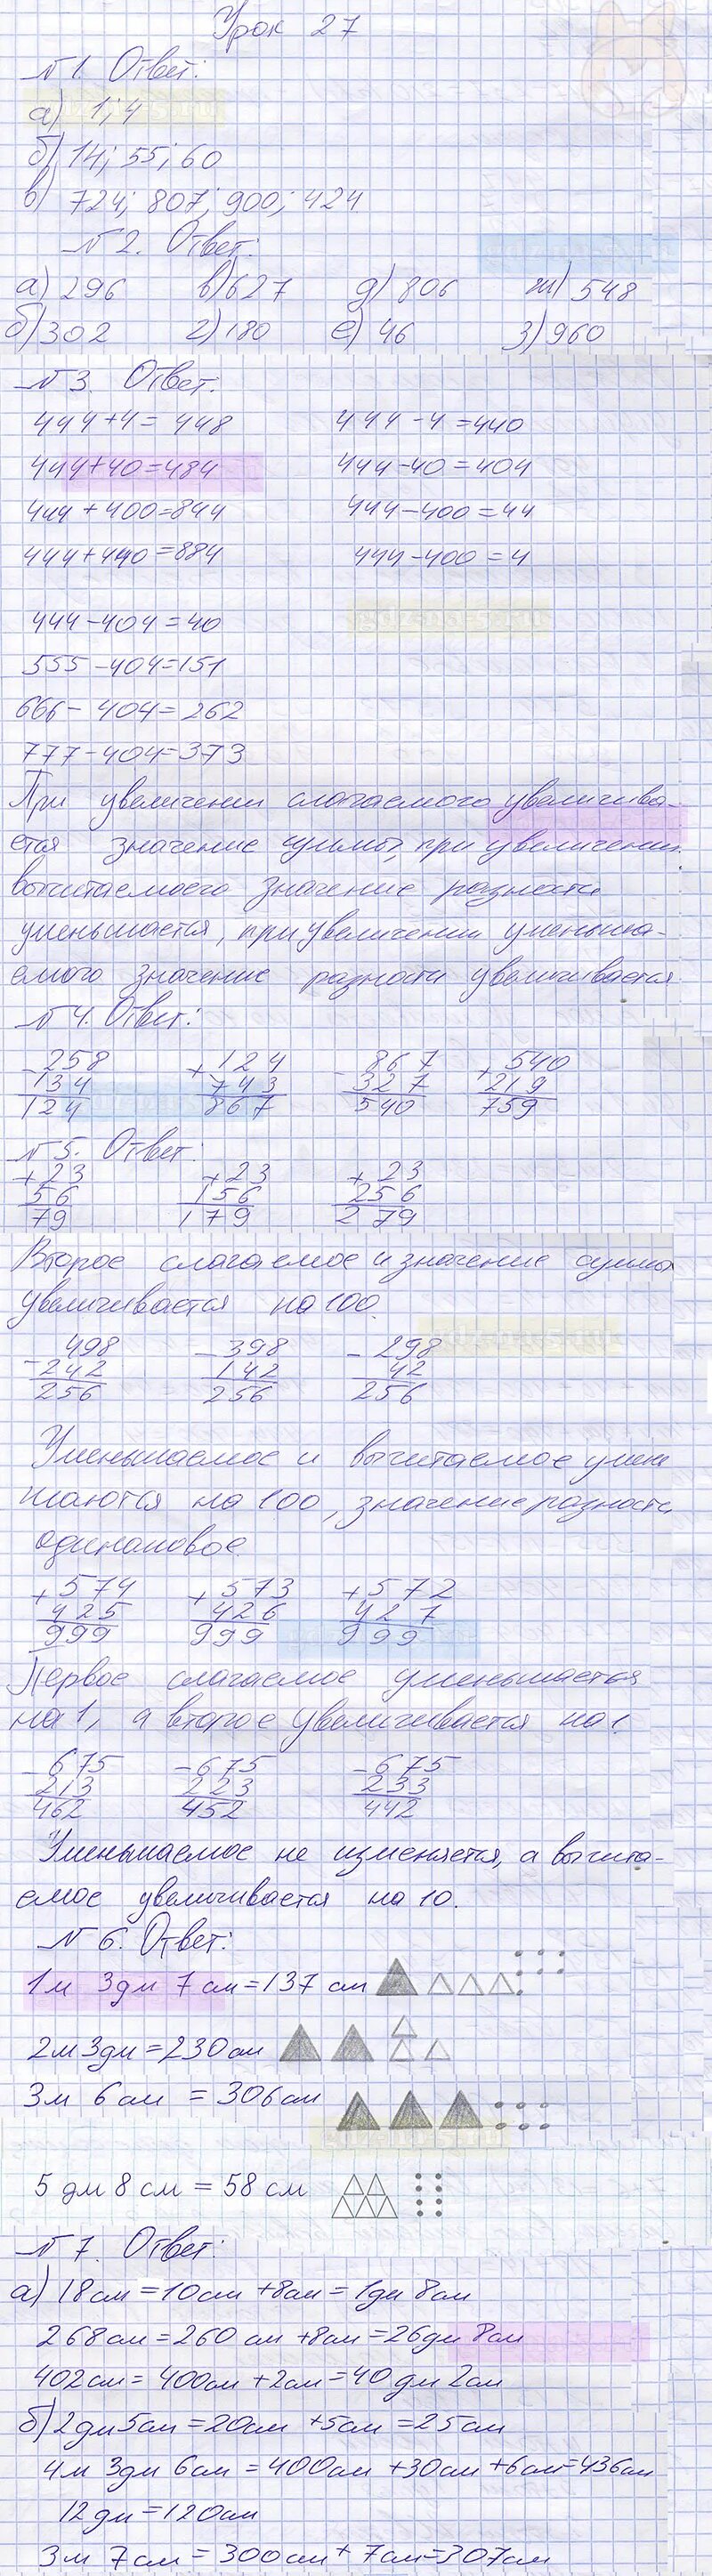 Урок 27
№ 1. Ответ:
а) 1; 4
б) 14; 55; 60
в) 724; 807; 900; 424
№ 2. Ответ:
а) 296 в) 627 д) 806 ж) 548
б) 302 г) 180 е) 46 з) 960
№ 3. Ответ:
444+4=448 444-4=440
444+40=484 444-40=404
444+400=844 444-400=44
444+440=884 444-400=4
444-404=40
555-404=151
666-404=262
777-404=373
При увеличении слагаемого увеличива-
ется значение суммы, при увеличении
вычитаемого значение разности
уменьшается, при увеличении уменьша-
емого значение разности увеличивается
№ 4. Ответ:
-258 +124 -867 +540
134 743 327 219
124 867 540 759
№ 5. Ответ:
+23 +23 +23
56 156 256
79 179 279
Второе слагаемое и значение суммы
увеличивается на 100.
-498 -398 -298
242 142 42
256 256 256
Уменьшаемое и вычитаемое умен
шаются на 100, значение разности
одинаковое.
+574 +573 +572
425 426 427
999 999 999
Первое слагаемое уменьшается
на 1, а второе увеличивается на 1.
-675 -675 -675
213 223 233
462 452 442
Уменьшаемое не изменяется, а вычита-
емое увеличивается на 10.
№ 6. Ответ:
1м 3дм 7см=137 см
2м 3дм=230см
3м 6см = 306см
5 дм 8 см = 58 см
№ 7. Ответ:
а) 18см=10см+8см=1дм 8см
268см=260 см +8см=26дм 8см
402см=400см+2см=40 дм 2см
б) 2дм 5см=20см+5см=25см
4м 3дм 6см=400см+30см+6см=436см
12дм=120см
3м 7см=300см+7см=307см